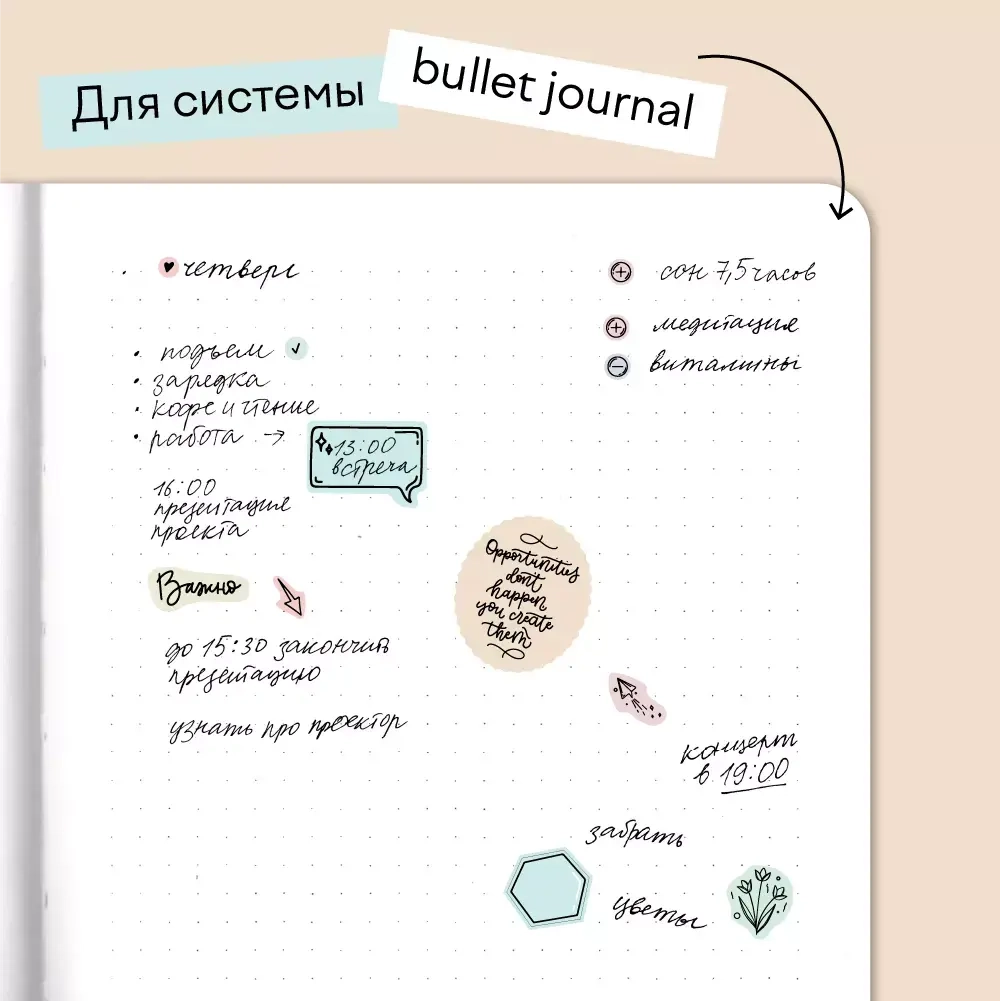 Для системы
bullet journal
четверг
сон 7,5 часов
медитация
витамины
• подъем
• зарядка
• кофе и чтение
• работа →
13:00
встреча
16:00
презентация
проекта
Важно
до 15:30 закончить
презентацию
узнать про проектор
Opportunities
don't
happen
you create
them
концерт
в 19:00
забрать
цветы